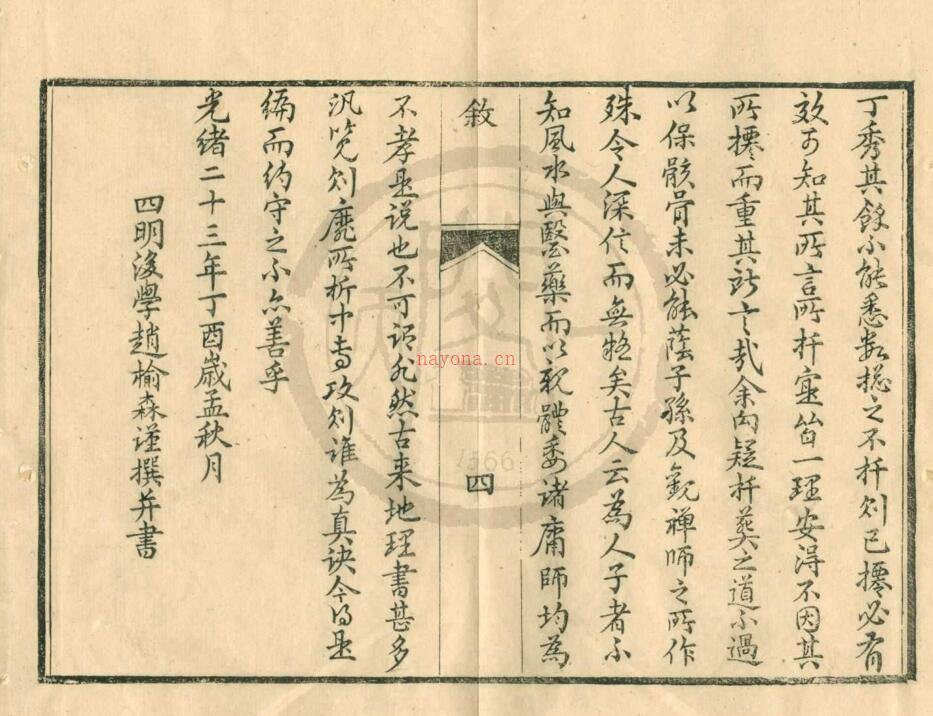 丁秀其餘不能悉數揔之不扦則已擇必有
效可知其所言所扦寔皆一理安得不因其
所擇而重其所言哉余向疑扦葬之道不過
以保骸骨未必能蔭子孫及觀禪師之所作
殊令人深信而無疑矣古人云為人子者不
知風水與醫藥而以親體委諸庸師均為
敘
四
不孝是說也不可謂不然古来地理書甚多
汎覽則靡所折中專攻則誰為真訣今得是
編而約守之不亦善乎
光緒二十三年丁酉歲孟秋月
四明後學趙榆森謹撰并書
nayona.cn
1566